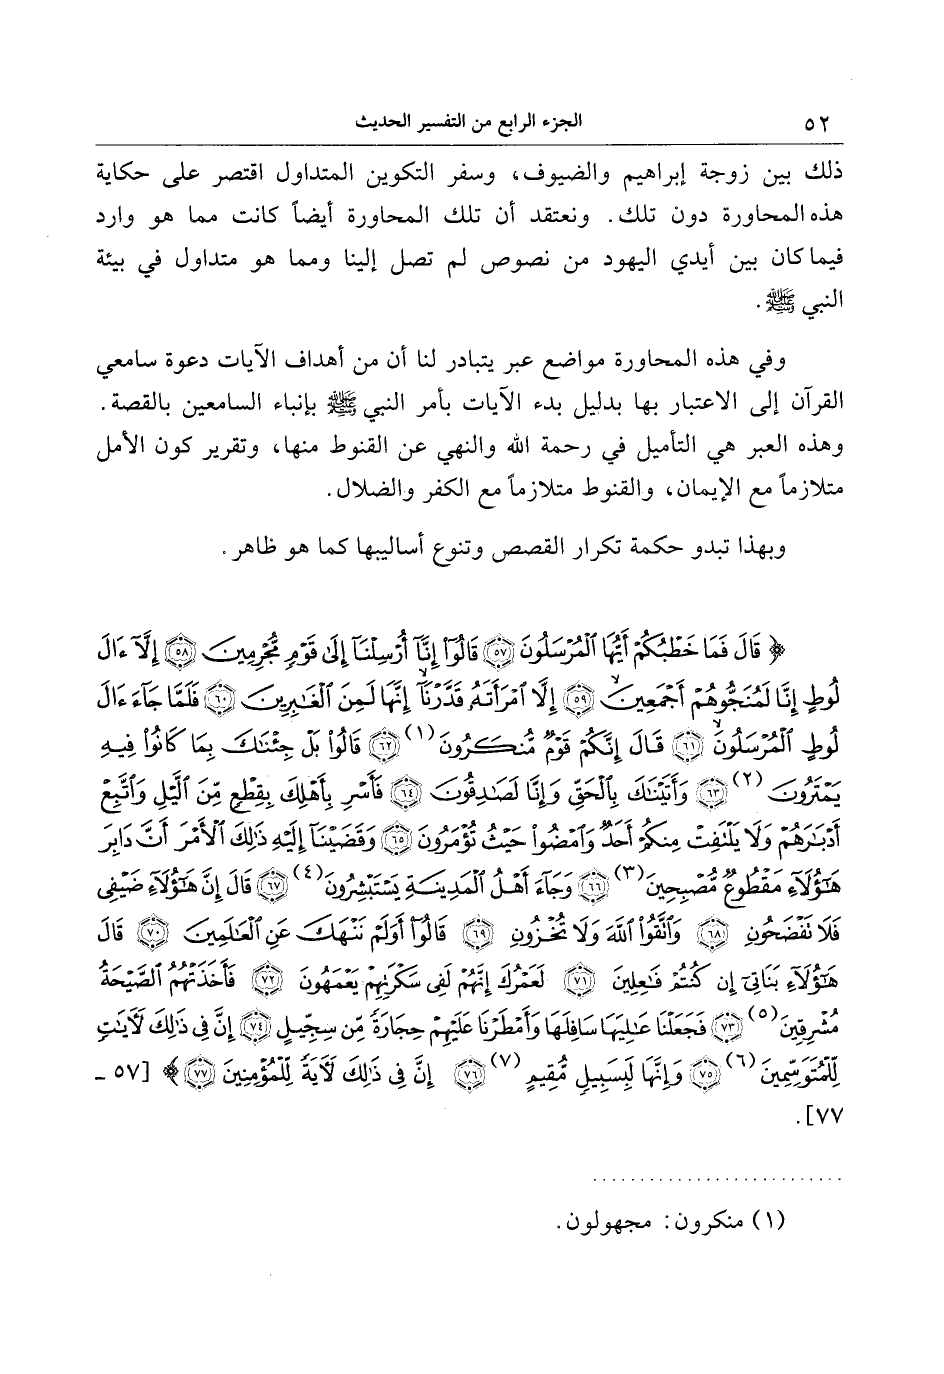 ٥٢
الجزء الرابع من التفسير الحديث
ذلك بين زوجة إبراهيم والضيوف، وسفر التكوين المتداول اقتصر على حكاية
هذه المحاورة دون تلك. ونعتقد أن تلك المحاورة أيضاً كانت مما هو وارد
فيما كان بين أيدي اليهود من نصوص لم تصل إلينا ومما هو متداول في بيئة
النبي ﷺ.
وفي هذه المحاورة مواضع عبر يتبادر لنا أن من أهداف الآيات دعوة سامعي
القرآن إلى الاعتبار بها بدليل بدء الآيات بأمر النبي ﷺ بإنباء السامعين بالقصة.
وهذه العبر هي التأميل في رحمة الله والنهي عن القنوط منها، وتقرير كون الأمل
متلازماً مع الإيمان، والقنوط متلازماً مع الكفر والضلال.
وبهذا تبدو حكمة تكرار القصص وتنوع أساليبها كما هو ظاهر.
﴿ قَالَ فَمَا خَطْبُكُمْ أَيُّهَا ٱلْمُرْسَلُونَ ٥٧ قَالُوٓا۟ إِنَّآ أُرْسِلْنَآ إِلَىٰ قَوْمٍ مُّجْرِمِينَ ٥٨ إِلَّآ ءَالَ
لُوطٍ إِنَّا لَمُنَجُّوهُمْ أَجْمَعِينَ ٥٩ إِلَّا ٱمْرَأَتَهُۥ قَدَّرْنَآ إِنَّهَا لَمِنَ ٱلْغَٰبِرِينَ ٦٠ فَلَمَّا جَآءَ ءَالَ
لُوطٍ ٱلْمُرْسَلُونَ ٦١ قَالَ إِنَّكُمْ قَوْمٌ مُّنكَرُونَ (١) ٦٢ قَالُوا۟ بَلْ جِئْنَٰكَ بِمَا كَانُوا۟ فِيهِ
يَمْتَرُونَ (٢) ٦٣ وَأَتَيْنَٰكَ بِٱلْحَقِّ وَإِنَّا لَصَٰدِقُونَ ٦٤ فَأَسْرِ بِأَهْلِكَ بِقِطْعٍ مِّنَ ٱلَّيْلِ وَٱتَّبِعْ
أَدْبَٰرَهُمْ وَلَا يَلْتَفِتْ مِنكُمْ أَحَدٌ وَٱمْضُوا۟ حَيْثُ تُؤْمَرُونَ ٦٥ وَقَضَيْنَآ إِلَيْهِ ذَٰلِكَ ٱلْأَمْرَ أَنَّ دَابِرَ
هَٰٓؤُلَآءِ مَقْطُوعٌ مُّصْبِحِينَ (٣) ٦٦ وَجَآءَ أَهْلُ ٱلْمَدِينَةِ يَسْتَبْشِرُونَ (٤) ٦٧ قَالَ إِنَّ هَٰٓؤُلَآءِ ضَيْفِى
فَلَا تَفْضَحُونِ ٦٨ وَٱتَّقُوا۟ ٱللَّهَ وَلَا تُخْزُونِ ٦٩ قَالُوٓا۟ أَوَلَمْ نَنْهَكَ عَنِ ٱلْعَٰلَمِينَ ٧٠ قَالَ
هَٰٓؤُلَآءِ بَنَاتِىٓ إِن كُنتُمْ فَٰعِلِينَ ٧١ لَعَمْرُكَ إِنَّهُمْ لَفِى سَكْرَتِهِمْ يَعْمَهُونَ ٧٢ فَأَخَذَتْهُمُ ٱلصَّيْحَةُ
مُشْرِقِينَ (٥) ٧٣ فَجَعَلْنَا عَٰلِيَهَا سَافِلَهَا وَأَمْطَرْنَا عَلَيْهِمْ حِجَارَةً مِّن سِجِّيلٍ ٧٤ إِنَّ فِى ذَٰلِكَ لَءَايَٰتٍ
لِّلْمُتَوَسِّمِينَ (٦) ٧٥ وَإِنَّهَا لَبِسَبِيلٍ مُّقِيمٍ (٧) ٧٦ إِنَّ فِى ذَٰلِكَ لَءَايَةً لِّلْمُؤْمِنِينَ ٧٧ ﴾ [٥٧ ـ
٧٧].
(١) منكرون: مجهولون.